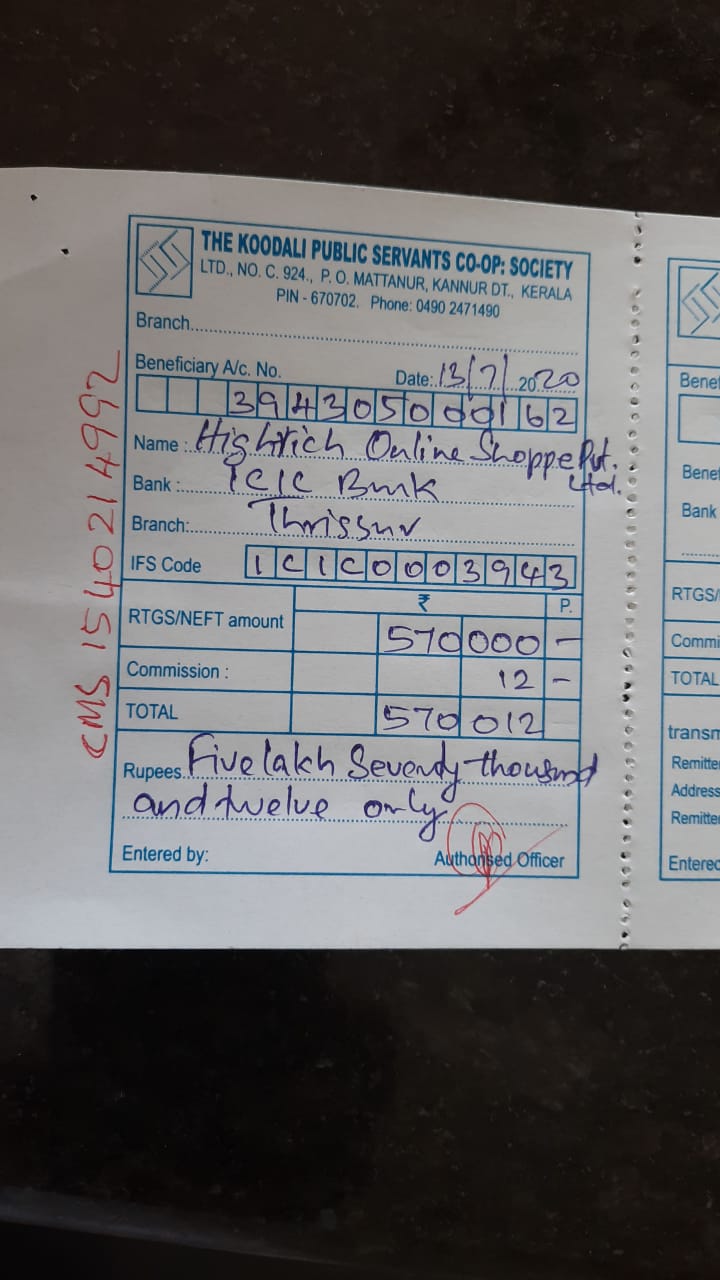 THE KOODALI PUBLIC SERVANTS CO-OP: SOCIETY
LTD., NO. C. 924., P. O. MATTANUR, KANNUR DT., KERALA
PIN - 670702. Phone: 0490 2471490
Branch
Beneficiary A/c. No. Date: 13/7/2020
394305000162
Name : Highrich Online Shoppe Pvt. Ltd.
Bank : ICIC Bank
Branch: Thrissur
IFS Code ICIC0003943
₹ P.
RTGS/NEFT amount 570000 –
Commission : 12 –
TOTAL 570012
Rupees Five lakh Seventy thousand
and twelve only
Entered by: Authorised Officer
CMS 1540214992
Benef
Benef
Bank
RTGS/
Commi
TOTAL
transm
Remitte
Address
Remitte
Entered